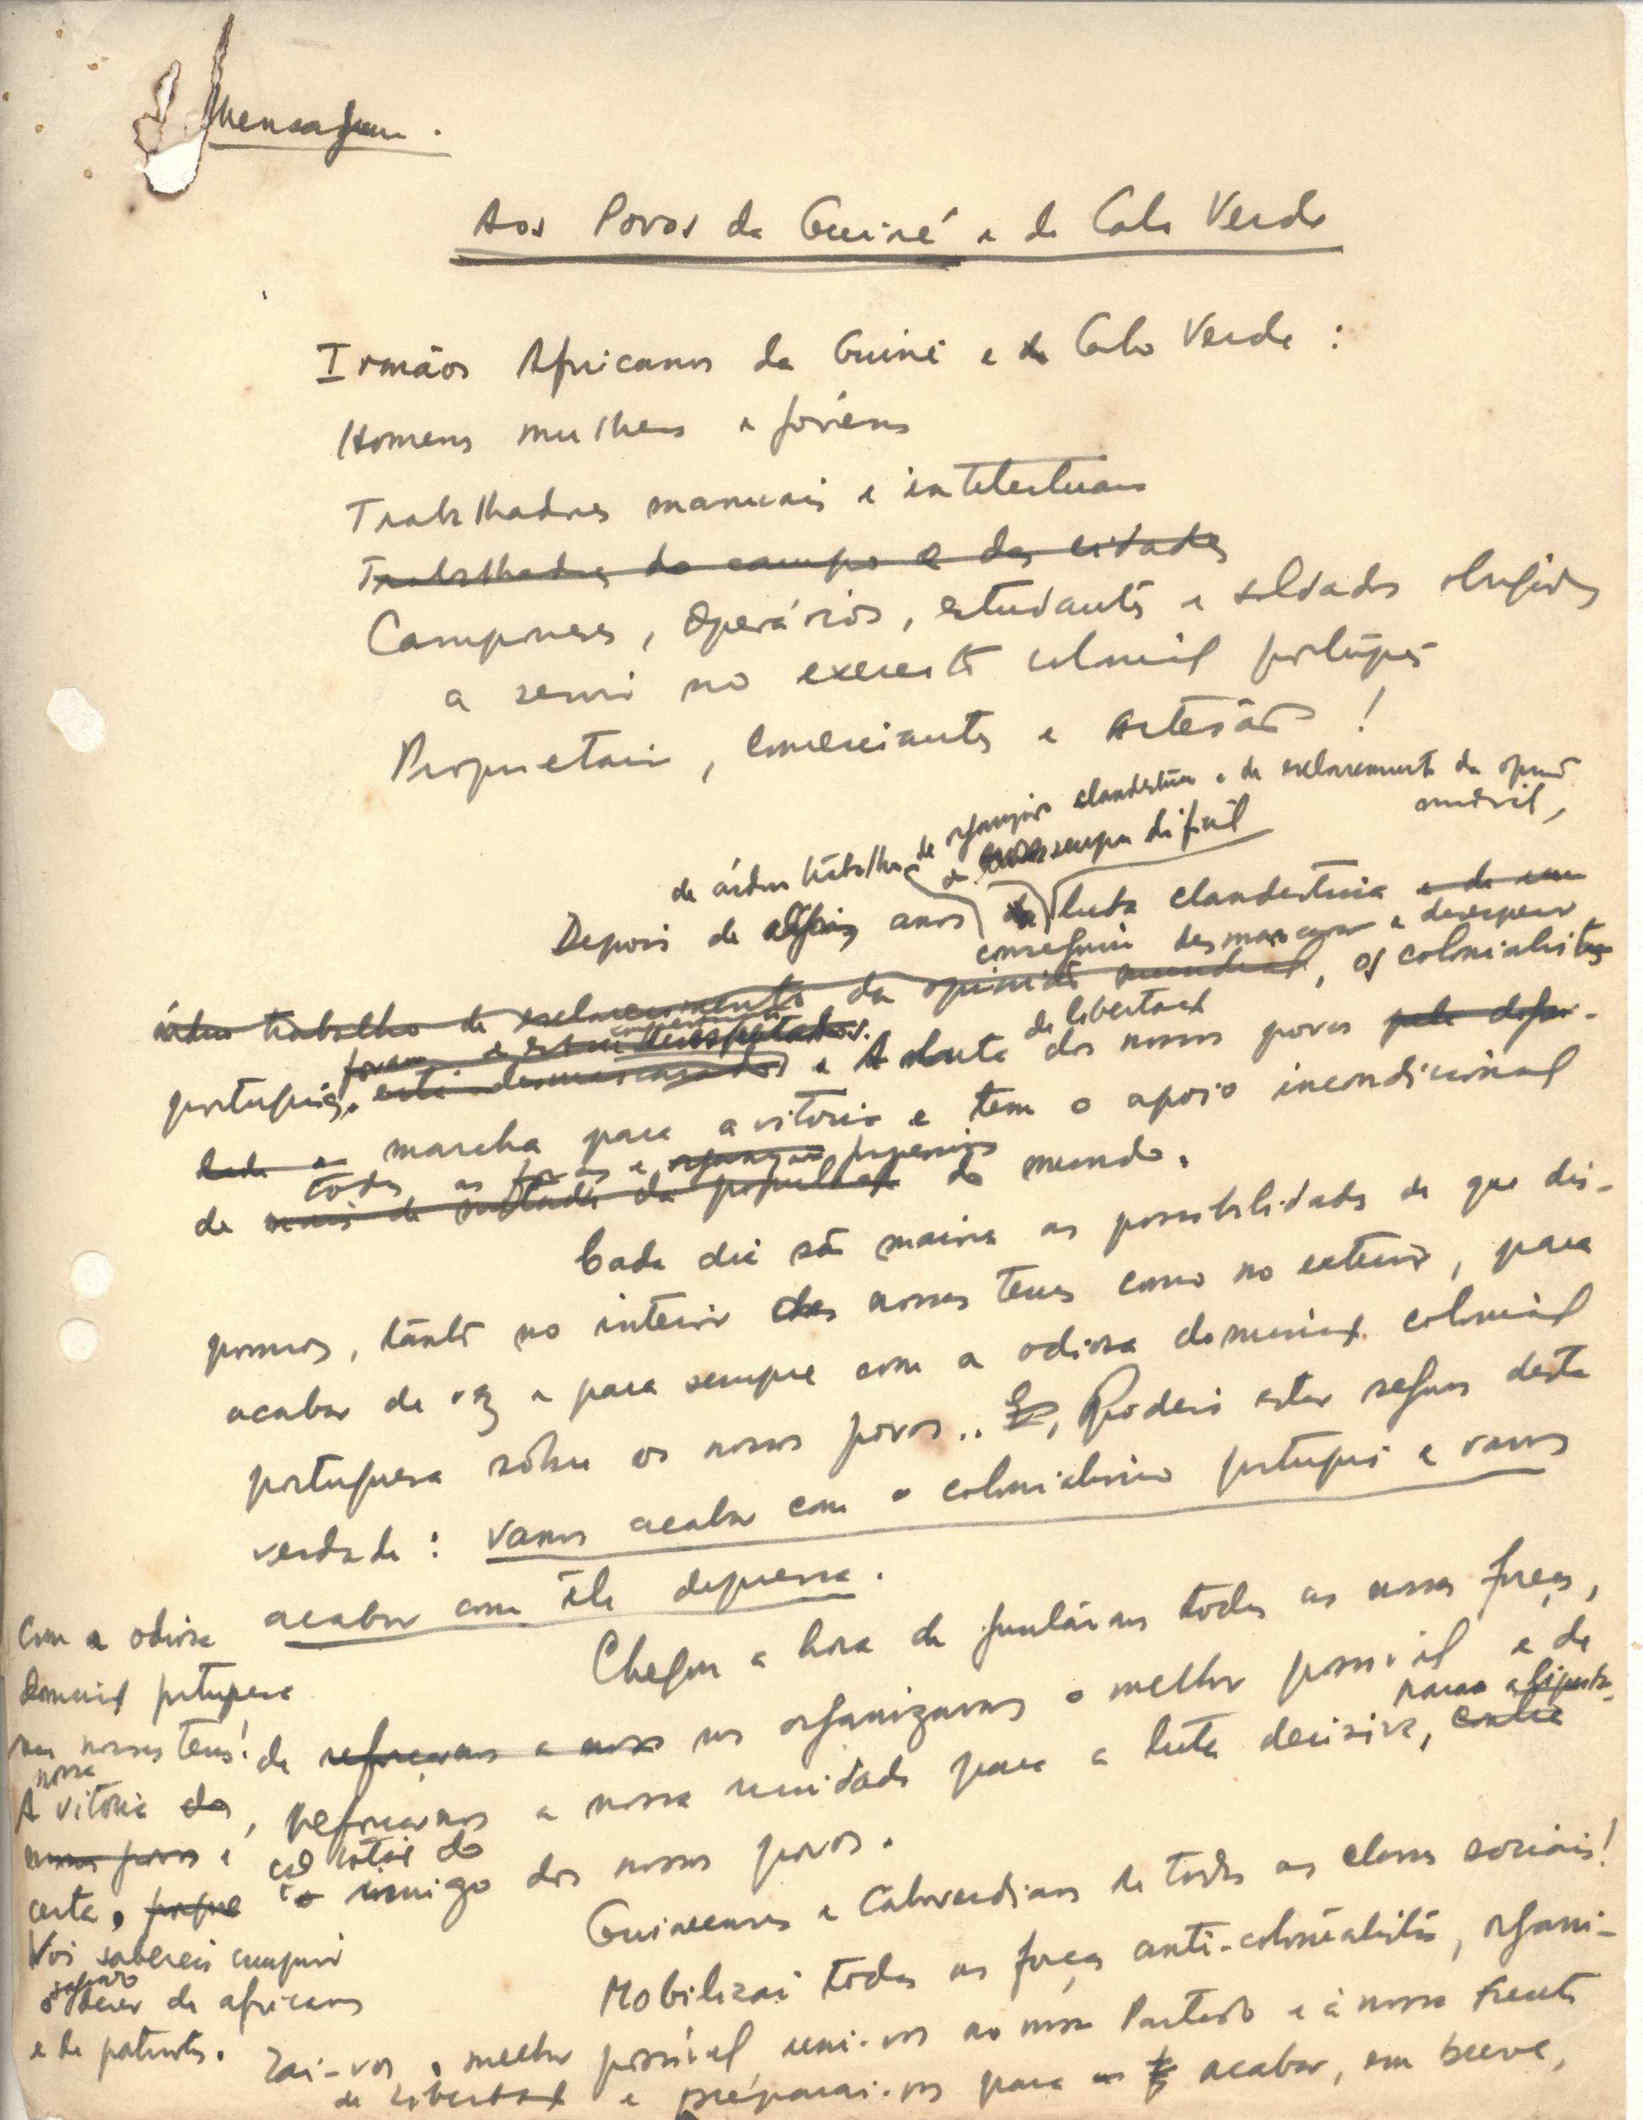 Mensagem.
Aos Povos da Guiné e de Cabo Verde
Irmãos Africanos da Guiné e de Cabo Verde :
Homens mulheres e jóvens
Trabalhadores manuais e intelectuais
Trabalhadores do campo e das cidades
Camponeses, Operários, estudantes e soldados obrigados
a servir no exercito colonial português
Proprietarios, Comerciantes e Artesãos !
de árduo trabalho de organização clandestina e de esclarecimento da opinião
mundial,
sempre dificil
Depois de alguns anos de luta clandestina e de um
conseguiu desmascarar e
árduo trabalho de esclarecimento da opinião mundial, os colonialistas
de libertação
portugueses. estão desmascarados e A luta dos nossos povos
marcha para a vitoria e tem o apoio incondicional
todas as forças progressivas
de mais de metade da população do mundo.
Cada dia são maiores as possibilidades de que dis-
pomos, tanto no interior das nossas terras como no exterior, para
acabar de vez e para sempre com a odiosa dominação colonial
portuguesa sôbre os nossos povos. Podeis estar seguros desta
verdade : vamos acabar com o colonialismo português e vamos
acabar com êle depressa.
Chegou a hora de juntármos todas as nossas forças,
de reforçarmos a nossa nos organizarmos o melhor possível e de
para a liquida-
reforçarmos a nossa unidade para a luta decisiva, contra
ção total do
o inimigo dos nossos povos.
Guineenses e Caboverdianos de todas as classes sociais!
Mobilizai todas as forças anti-colonialistas, organi-
zai-vos o melhor possível, uni-vos ao nosso Partido e à nossa Frente
de Libertação e préparai-vos para acabar, em breve,
Com a odiosa
dominação portuguesa
nas nossas terras!
nossa
A vitória dos
nossos povos é
certa, porque
Vós sabereis cumprir
o sagrado
dever de africanos
e de patriotas.